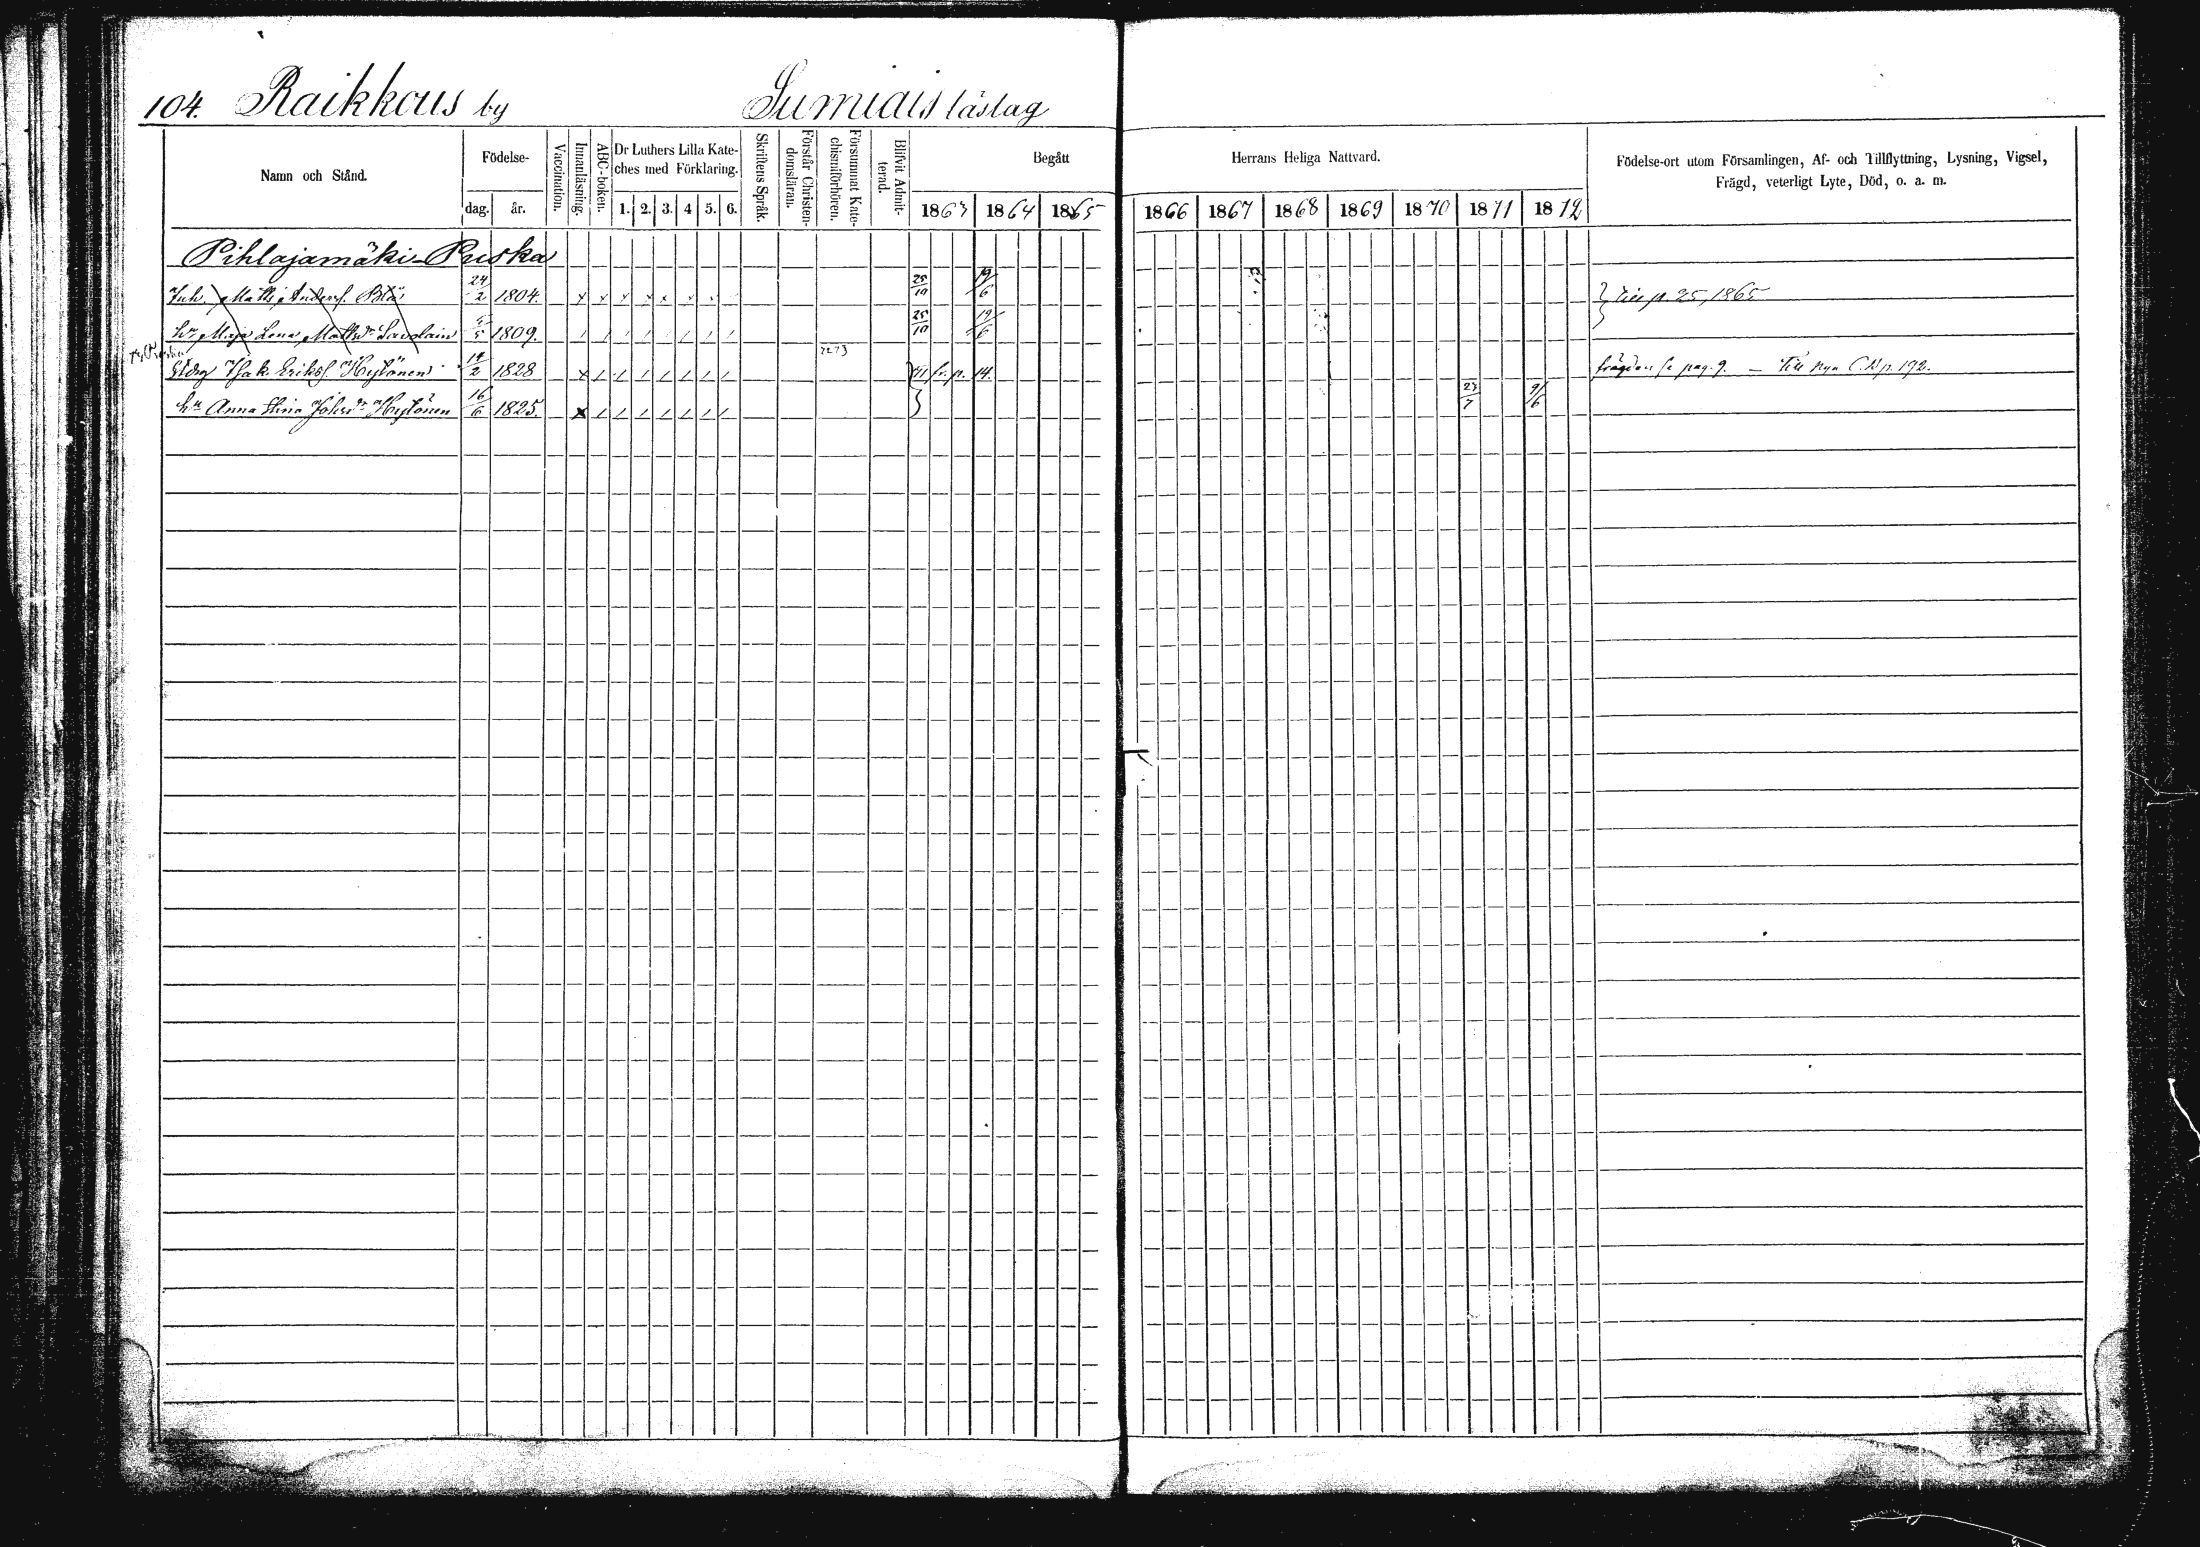 104. Raikkous by Sumiais läslag
Namn och Stånd. Födelse- dag. år. Vaccination. Innanläsning. ABC-boken. Dr Luthers Lilla Kateches med Förklaring. 1. 2. 3. 4 5. 6. Skriftens Språk. Förstår Christendomsläran. Försummat Katechismiförhören. Blifvit Admitterad. Begått Herrans Heliga Nattvard. Födelse-ort utom Församlingen, Af- och Tillflyttning, Lysning, Vigsel, Frägd, veterligt Lyte, Död, o. a. m.
1863 1864 1865 1866 1867 1868 1869 1870 1871 1872
Pihlajamäki-Puska
Inh. Matts Anders. 24/2 1804. x x x x x x x 25/10 19/6 } till p. 25, 1865
hu Maja Lena Mattsdr Savolain 5/5 1809. / / / / / / / / 25/10 19/6
7273
Isak Eriks. Hytönen 14/2 1828 x / / / / / / / fr. p. 14. frägden se pag. 9. — Till nya C.B. p. 192.
hu Anna Stina Johsdr Hytönen 16/6 1825. x / / / / / / / 23/7 9/6